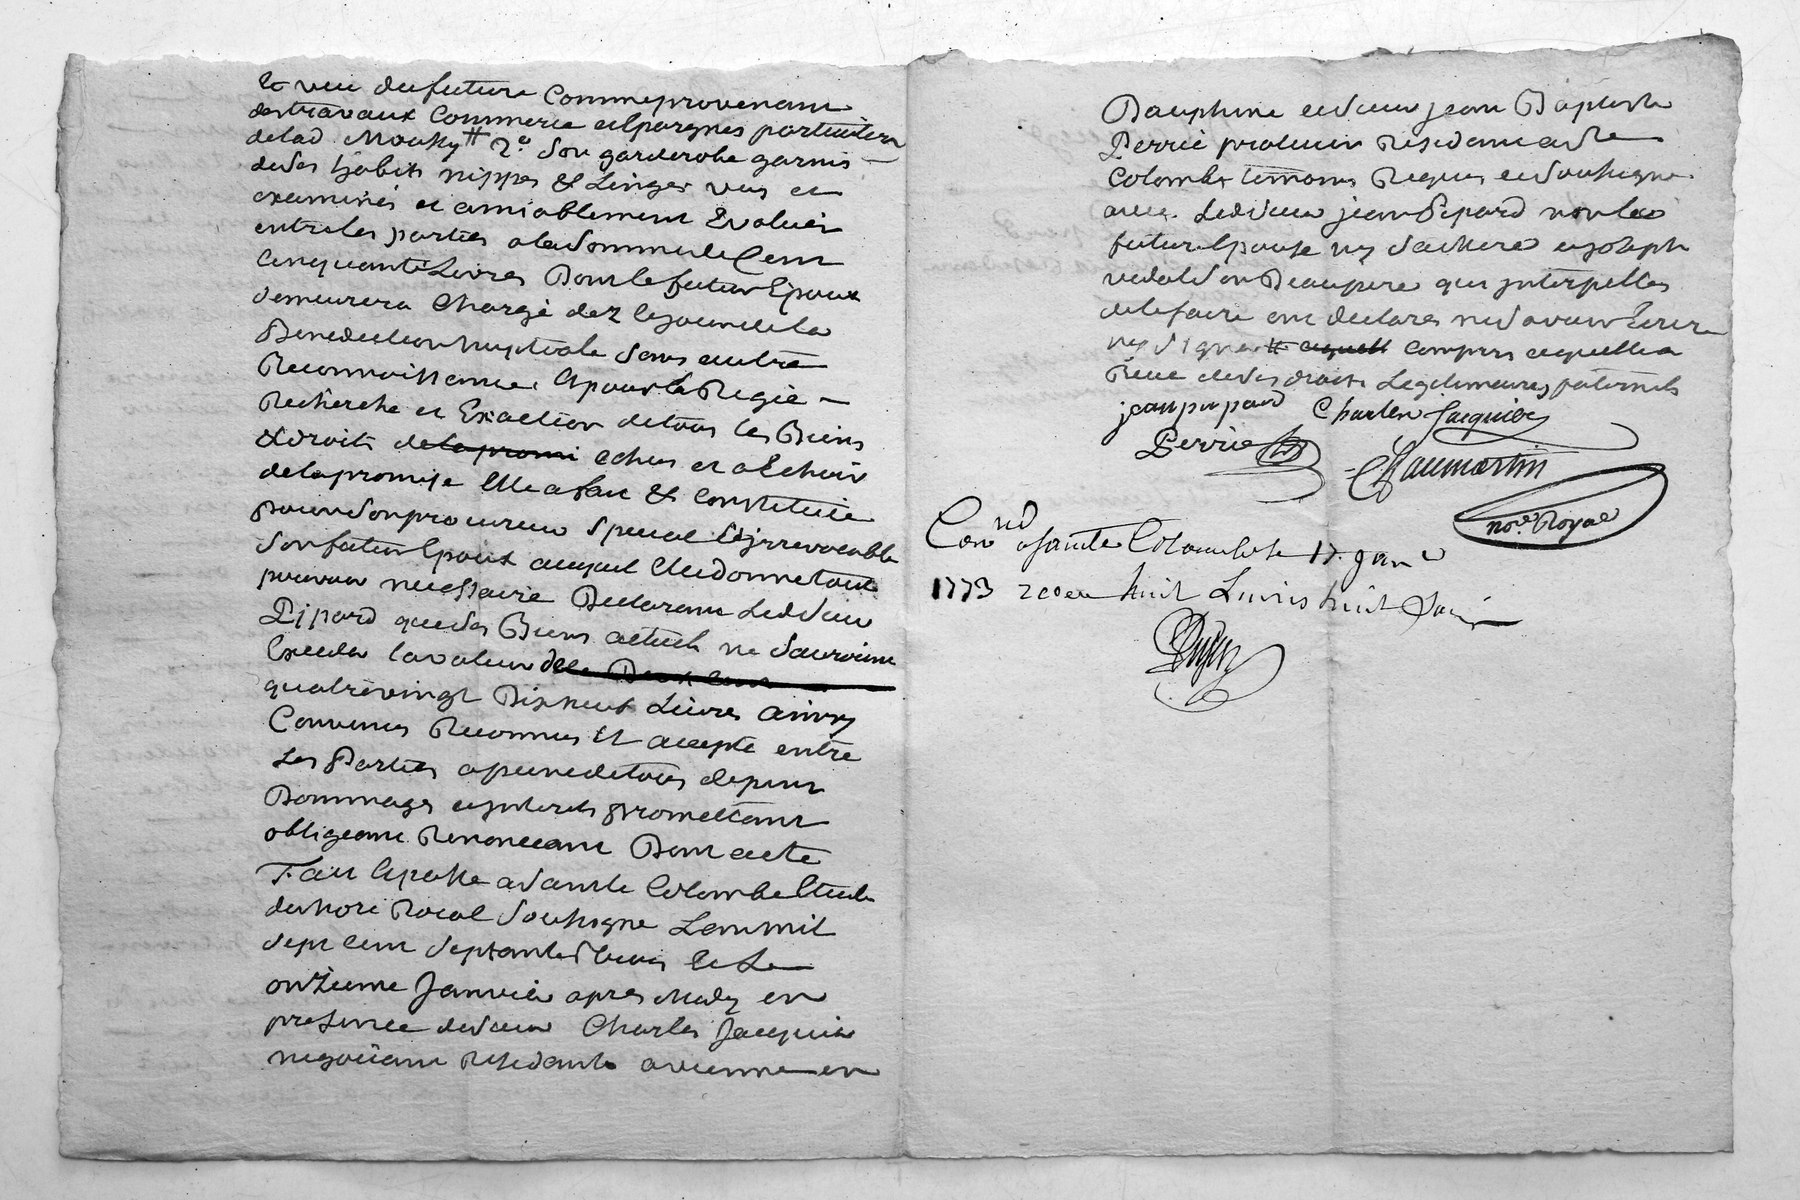 et veu du future Comme provenant
des travaux Commerce et Epargnes particuliers
de lad. Mouky # 2.° son garderobe garnis
de ses habits nippes & Linges vus et
examinés et amiablement Evalués
entre les parties a la somme de Cent
Cinquante Livres Dont le futur Epoux
demeurera Chargé dez le jour de la
Benediction nuptiale sans autre
Reconnoissance Et pour la Regie
Recherche et Exaction de tous les Biens
& droits de la promi echus et a Echoir
de la promise Elle a fait & Constitué
pour son procureur special & jrrevocable
son futur Epoux auquel Elle donne tout
pouvoir necessaire Declarant Led. sieur
Pipard que ses Biens actuels ne sauroient
Exceder la valeur de
quatrevingt Dix neuf Livres ainsy
Convenu Reconnu Et accepté entre
Les Parties a peine de tous depens
Dommages et jnterets promettant
obligeant Renonceant Dont acte
Fait Et passé a Sainte Colombe Etude
du Nore Roial soussigné L'an mil
sept cent septante trois et Le
onzieme Janvier apres Midy en
presence de sieur Charles Jacquier
negotiant Residant a vienne en
Dauphiné et sieur jean Baptiste
Perrié praticien Residant a Ste
Colombe temoins Requis et soussignés
avec Led. sieur jean Pipard non la
future Epouse ny sa mere et joseph
vidal son Beaupere qui jnterpellés
de le faire ont declarés ne savoir Ecrire
ny signer # aquell compris aquelle a
Reçue de ses droits Legitimaires paternels
jean pipard Charles Jacquier
Perrié Chaumartin
nore. Royal
Con nd a sainte Colombe le 17. janv
1773 reçu huit Livres huit sous